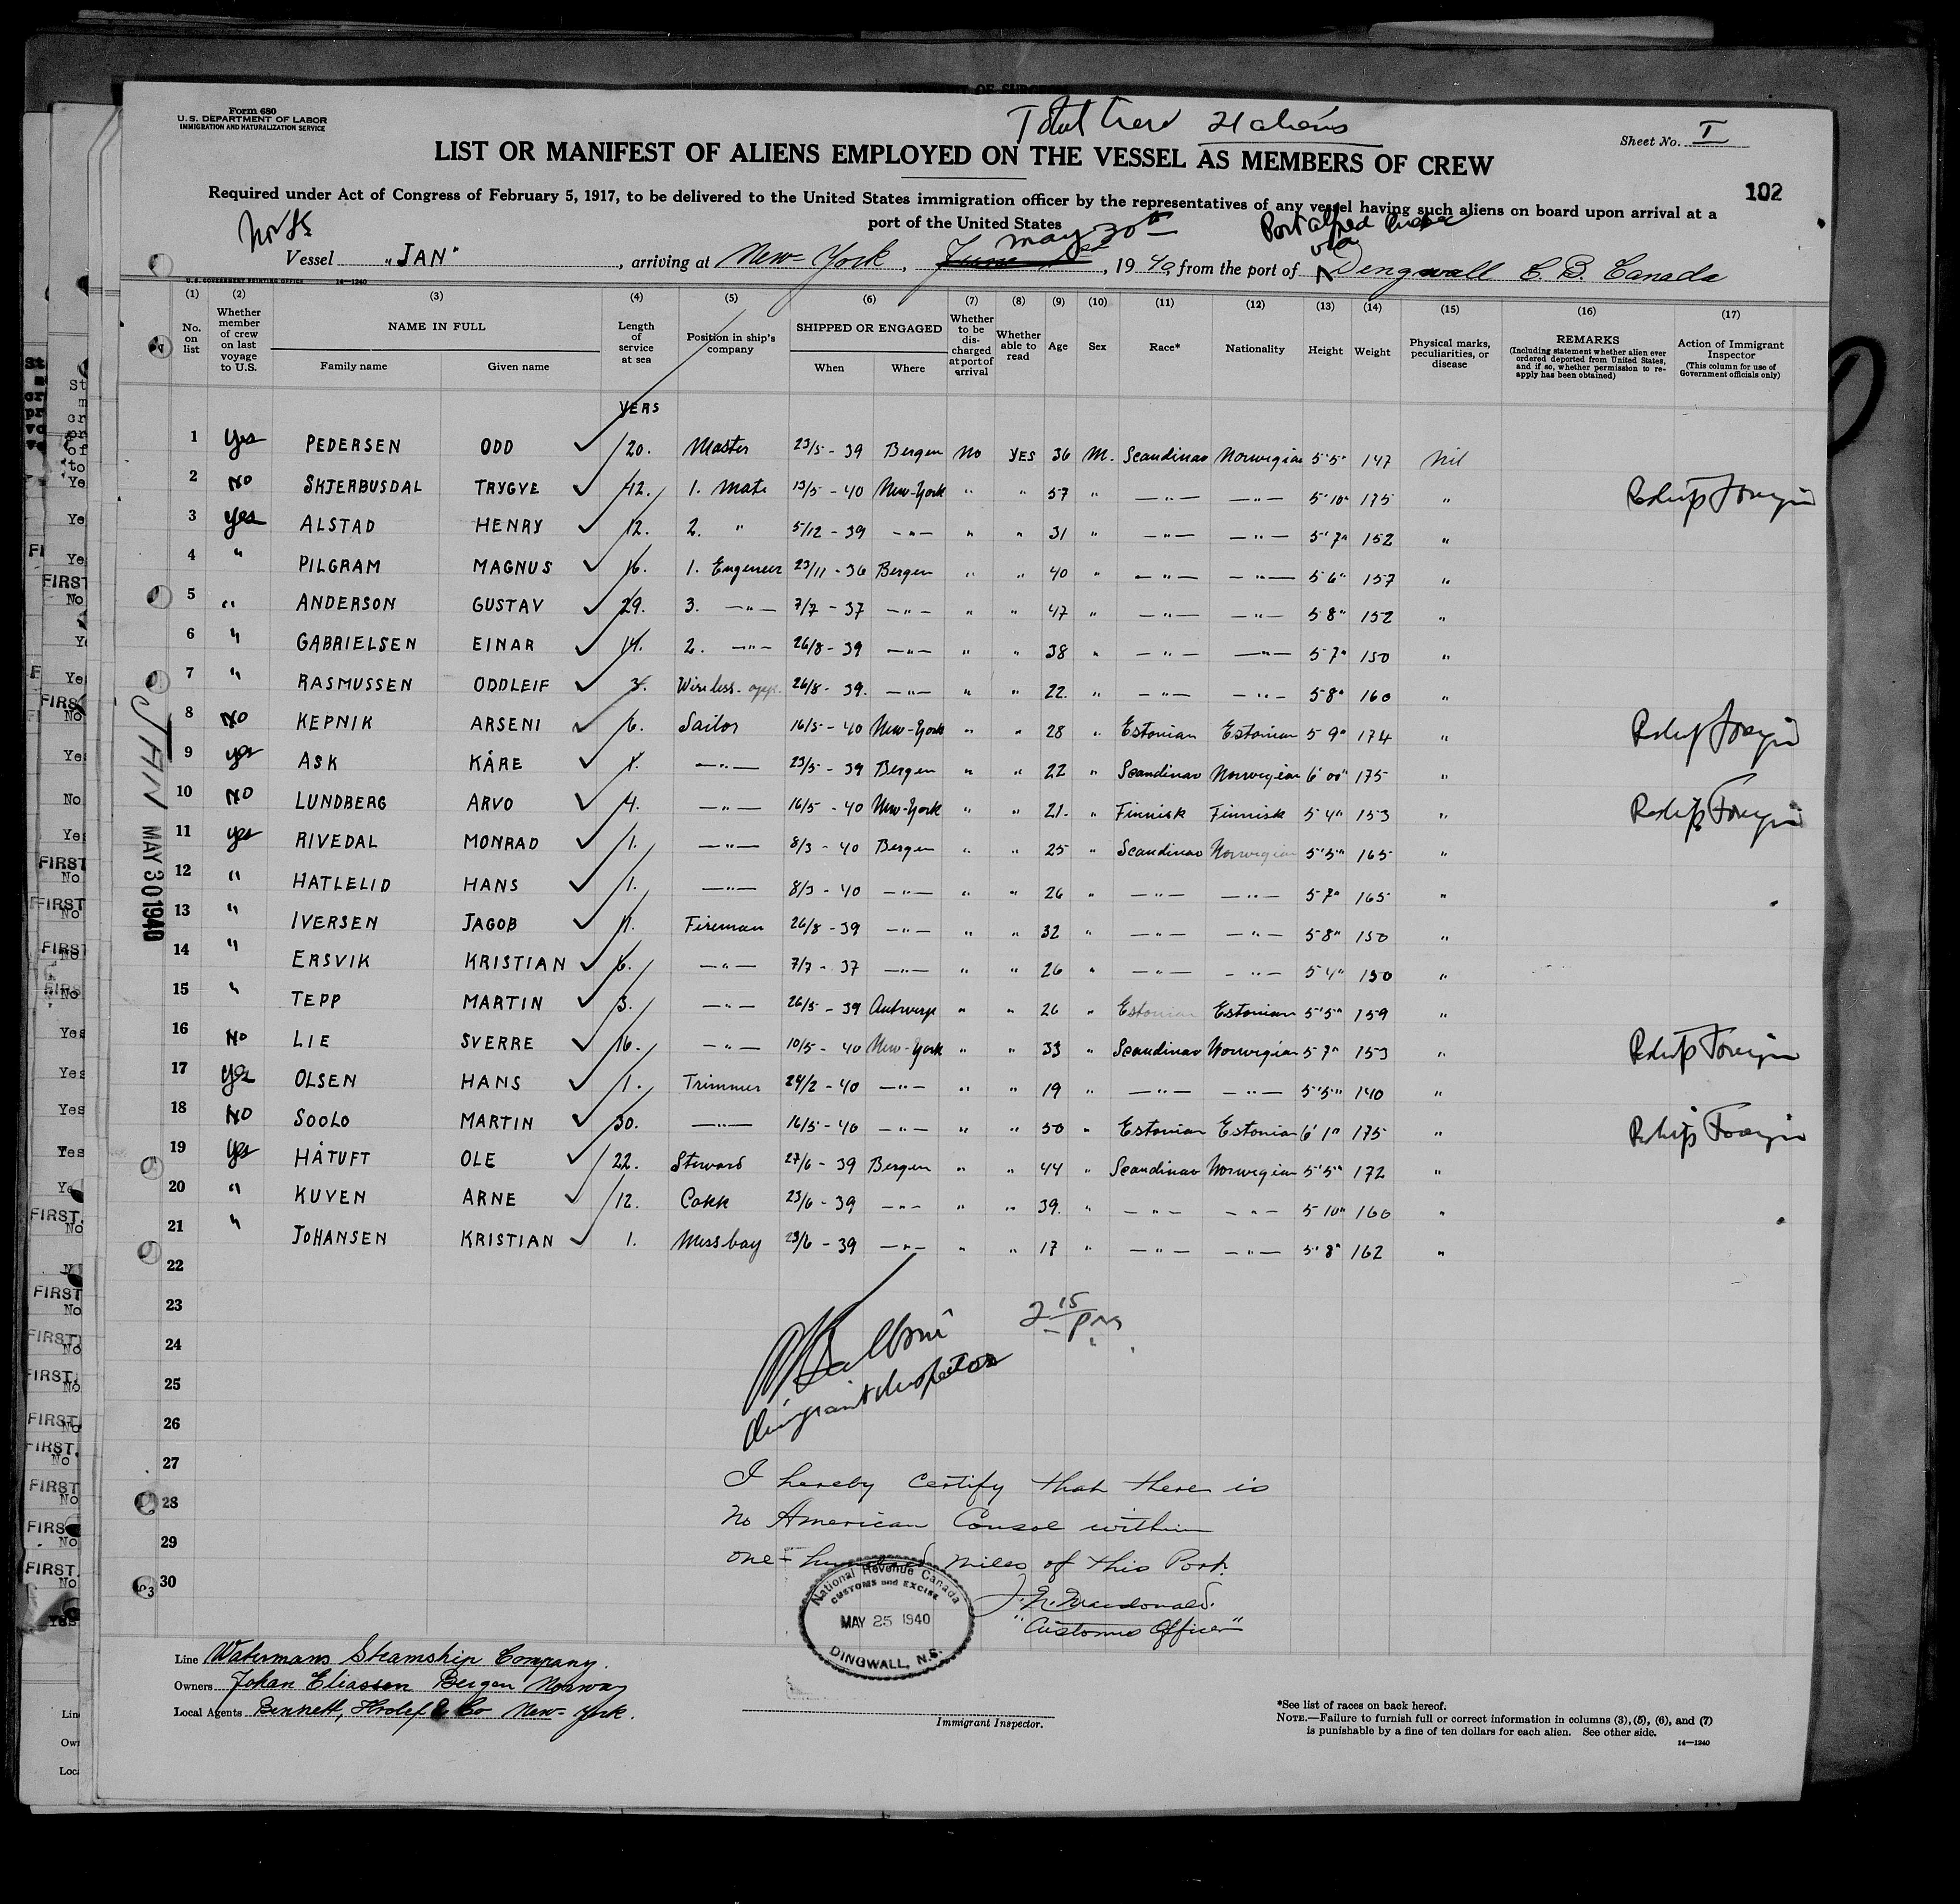 Form 680
U.S. DEPARTMENT OF LABOR
IMMIGRATION AND NATURALIZATION SERVICE
Total Crew 21 aliens
Sheet No. I
LIST OR MANIFEST OF ALIENS EMPLOYED ON THE VESSEL AS MEMBERS OF CREW
102
Required under Act of Congress of February 5, 1917, to be delivered to the United States immigration officer by the representatives of any vessel having such aliens on board upon arrival at a
port of the United States
May 30th
Port Alfred Quebec
via
Vessel "JAN", arriving at New-York, June 1st, 1940 from the port of Dengwall C. B. Canada
U.S. GOVERNMENT PRINTING OFFICE 14—1240
(1) (2) (3) (4) (5) (6) (7) (8) (9) (10) (11) (12) (13) (14) (15) (16) (17)
No. on list Whether member of crew on last voyage to U.S. NAME IN FULL Family name Given name Length of service at sea Position in ship's company SHIPPED OR ENGAGED When Where Whether to be discharged at port of arrival Whether able to read Age Sex Race* Nationality Height Weight Physical marks, peculiarities, or disease REMARKS (Including statement whether alien ever ordered deported from United States, and if so, whether permission to reapply has been obtained) Action of Immigrant Inspector (This column for use of Government officials only)
YERS
1 Yes PEDERSEN ODD ✓ 20. Master 23/5 - 39 Bergen No YES 36 M. Scandinav Norwegian 5'5" 147 Nil
2 No SKJERBUSDAL TRYGVE ✓ 42. 1. Mate 13/5 - 40 New-York " " 57 " —"— —"— 5'10" 175 " Reship Foreign
3 Yes ALSTAD HENRY ✓ 12. 2. " 5/12 - 39 —"— " " 31 " —"— —"— 5'7" 152 "
4 " PILGRAM MAGNUS ✓ 16. 1. Engineer 23/11 - 36 Bergen " " 40 " —"— —"— 5 6" 157 "
5 " ANDERSON GUSTAV ✓ 29. 3. —"— 7/7 - 37 —"— " " 47 " —"— —"— 5 8" 152 "
6 " GABRIELSEN EINAR ✓ 14. 2. —"— 26/8 - 39 —"— " " 38 " —"— —"— 5 7" 150 "
7 " RASMUSSEN ODDLEIF ✓ 3. Wireless-opr. 26/8 - 39. —"— " " 22. " —"— —"— 5 8" 160 "
8 No KEPNIK ARSENI ✓ 6. Sailor 16/5 - 40 New-York " " 28 " Estonian Estonian 5 9" 174 " Reship Foreign
9 yes ASK KÅRE ✓ 1. —"— 23/5 - 39 Bergen " " 22 " Scandinav Norwegian 6'00" 175 "
10 No LUNDBERG ARVO ✓ 4. —"— 16/5 - 40 New-York " " 21. " Finnisk Finnisk 5 4" 153 " Reship Foreign
11 yes RIVEDAL MONRAD ✓ 1. —"— 8/3 - 40 Bergen " " 25 " Scandinav Norwegian 5'5" 165 "
12 " HATLELID HANS ✓ 1. —"— 8/3 - 40 —"— " " 26 " —"— —"— 5 7" 165 "
13 " IVERSEN JAGOB ✓ 11. Fireman 26/8 - 39 —"— " " 32 " —"— —"— 5 8" 150 "
14 " ERSVIK KRISTIAN ✓ 6. —"— 7/7 - 37 —"— " " 26 " —"— —"— 5 4" 150 "
15 " TEPP MARTIN ✓ 3. —"— 26/5 - 39 Antwerp " " 26 " Estonian Estonian 5'5" 159 "
16 No LIE SVERRE ✓ 16. —"— 10/5 - 40 New-York " " 33 " Scandinav Norwegian 5 7" 153 " Reship Foreign
17 yes OLSEN HANS ✓ 1. Trimmer 24/2 - 40 —"— " " 19 " —"— —"— 5'5" 140 "
18 No SOOLO MARTIN ✓ 30. —"— 16/5 - 40 —"— " " 50 " Estonian Estonian 6'1" 175 " Reship Foreign
19 yes HÅTUFT OLE ✓ 22. Steward 27/6 - 39 Bergen " " 44 " Scandinav Norwegian 5'5" 172 "
20 " KUVEN ARNE ✓ 12. Cokk 23/6 - 39 —"— " " 39. " —"— —"— 5 10" 160 "
21 " JOHANSEN KRISTIAN ✓ 1. Messboy 23/6 - 39 —"— " " 17 " —"— —"— 5'8" 162 "
22
23
24
25
26
27
28
29
30
JAN MAY 30 1940
2 15 PM
Immigrant Inspector
I hereby certify that there is
No American Consol within
one-hundred miles of this Port.
J. N. Macdonald.
"Customs Officer"
National Revenue Canada
CUSTOMS and EXCISE
MAY 25 1940
DINGWALL, N.S.
Line Watermans Steamship Company.
Owners Johan Eliassen Bergen Norway
Local Agents Bennett, Hvolef & Co New-York.
Immigrant Inspector.
*See list of races on back hereof.
NOTE.—Failure to furnish full or correct information in columns (3), (5), (6), and (7)
is punishable by a fine of ten dollars for each alien. See other side.
14—1240